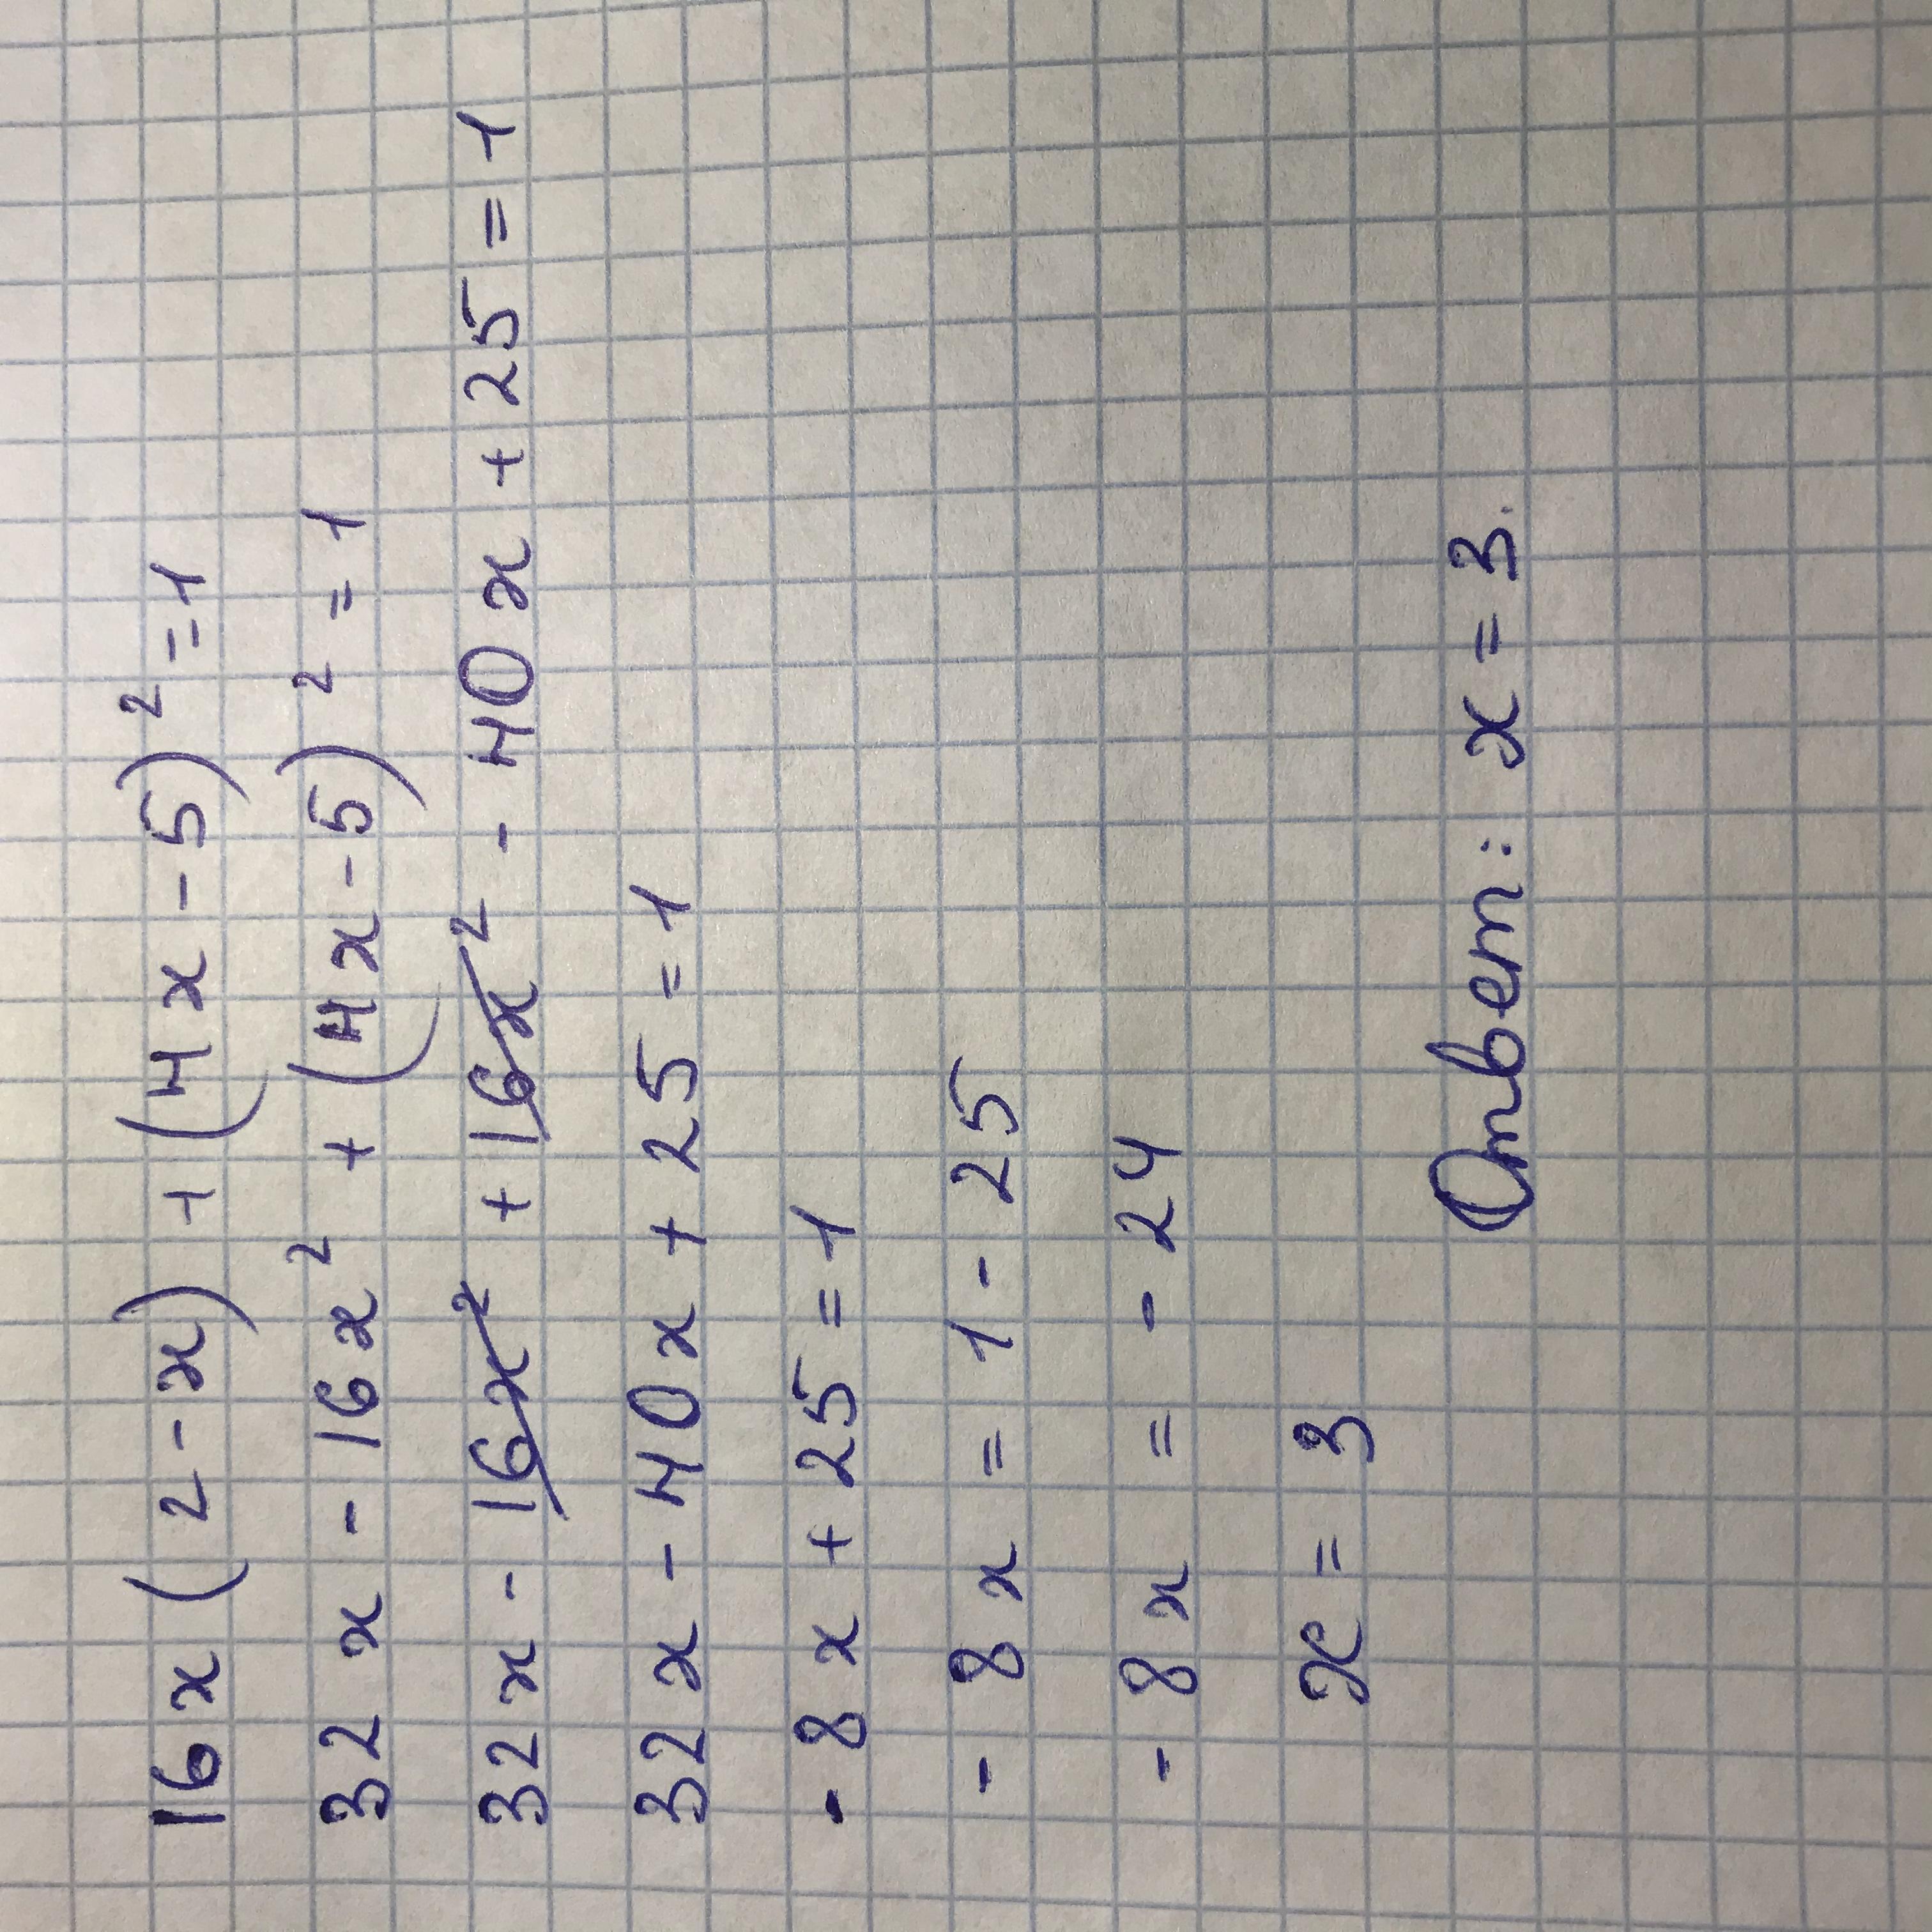 16x(2-x)+(4x-5)²=1
32x-16x²+(4x-5)²=1
32x-16x²+16x²-40x+25=1
32x-40x+25=1
-8x+25=1
-8x=1-25
-8x=-24
x=3
Ответ: x=3.